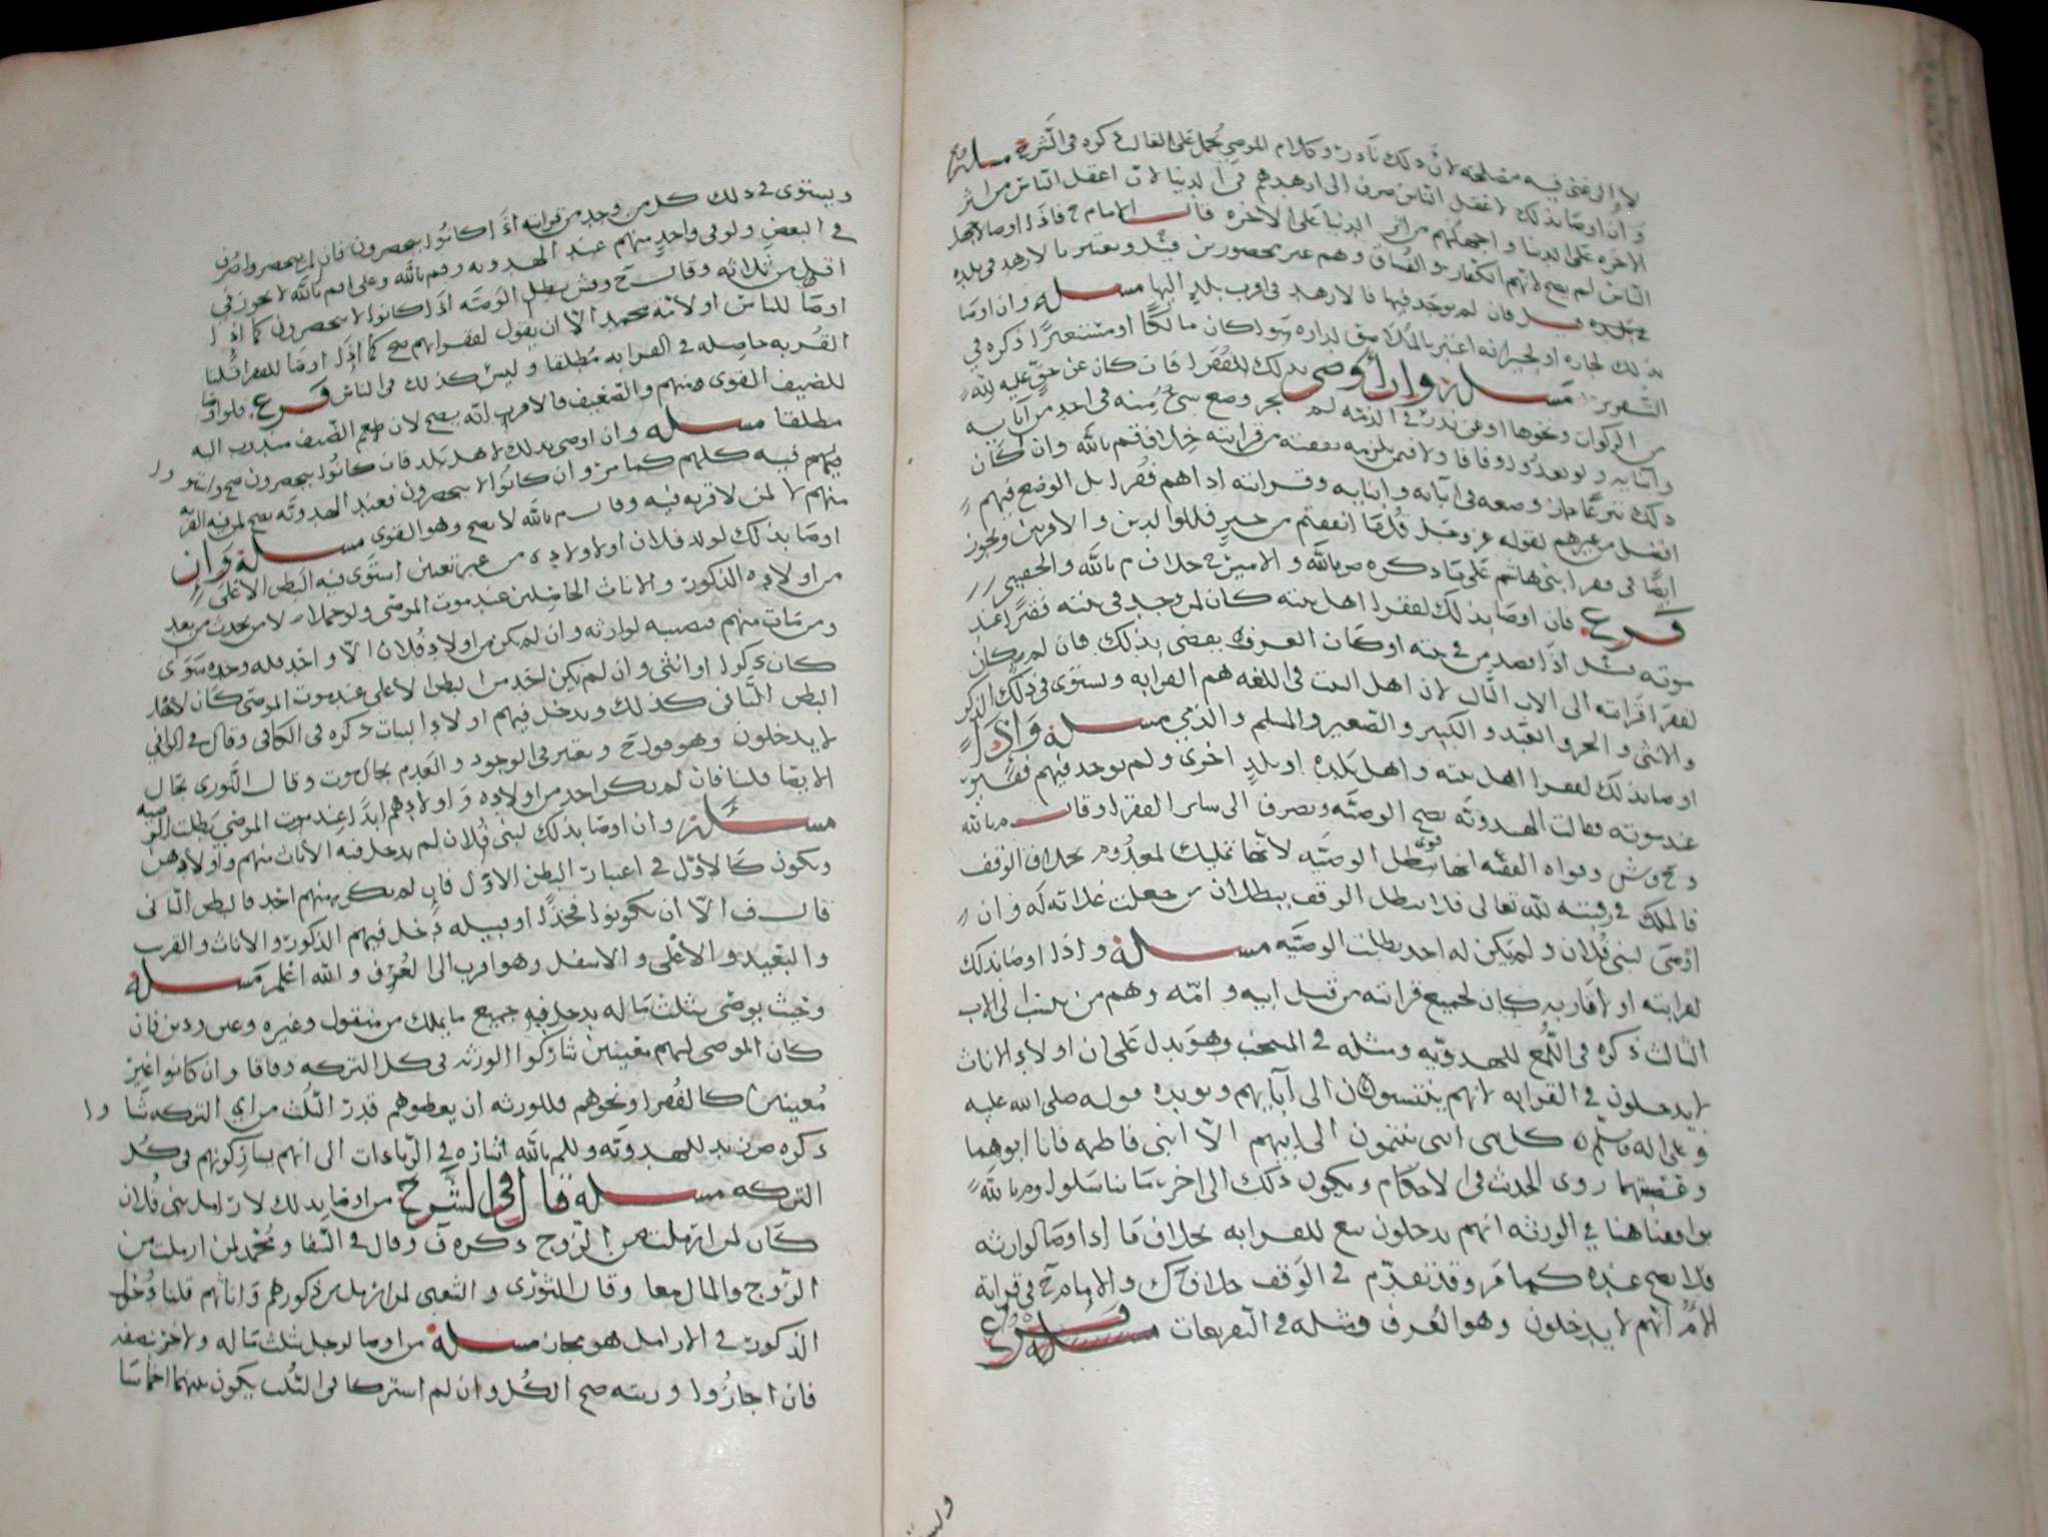 لا الى غنى فيه مصلحه لان ذلك نادر وكلام الموصي يحمل على الغالب ذكره في الشرح مسله
وان اوصا بذلك لاعقل الناس صرف الى ازهدهم في الدنيا لان اعقل الناس من اثر
الاخره على الدنيا و اجهلهم من اثر الدنيا على الاخره قال الامام ح فاذا اوصا لاجهل
الناس لم يصح لانهم الكفار والفساق وهم غير محصورين قيل ويعتبر بالازهد في بلده
فان لم يوجد فيها فالازهد في اقرب بلد اليها مسله وان اوصا
بذلك لجاره او لجيرانه اعتبر بالملاصق لداره سوا كان مالكا او مستعيرا ذكره في
التقرير مسله وان أوصى بذلك للفقرا فان كان عن حق عليه لله
من الزكوات ونحوها او عن نذر في الذمه لم يجز وضع شي منه في احد من آبايه
وابنايه ولو بعدوا وفاقا ولا فيمن يلزمه نفقته من قرابته خلاف م بالله وان كان
ذلك تبرعا جاز وضعه في آبايه وابنايه وقرابته اذا هم فقرا بل الوضع فيهم
افضل من غيرهم لقوله عز وجل قل ما انفقتم من خير فللوالدين والاقربين ويجوز
ايضا في فقرا بني هاشم على ما ذكره ص بالله والامير ح خلاف م بالله والحقيني
فرع فان اوصا بذلك لفقرا اهل بيته كان لمن وجد في بيته فقيرا عند
موته قيل اذا قصد من في بيته او كان العرف يقضي بذلك فان لم يكن كان
لفقرا قرابته الى الاب الثالث لان اهل البيت في اللغه هم القرابه ويستوي في ذلك الذكر
والانثى والحر والعبد والكبير والصغير والمسلم والذمي مسله وإذا
اوصا بذلك لفقرا اهل بيته واهل بلده او بلد اخرى ولم يوجد فيهم فقير
عند موته فقالت الهدويه يصح الوصيه ويصرف الى ساير الفقرا وقال م بالله
وح وش وقواه الفقيه ف انها تبطل الوصيه لانها تمليك لمعدوم بخلاف الوقف
فالملك في رقبته لله تعالى فلا يبطل الوقف ببطلان من جعلت غلاته له وان
اوصى لبني فلان ولم يكن له احد بطلت الوصيه مسله واذا اوصا بذلك
لقرابته او لاقاربه كان لجميع قرابته من قبل ابيه وامه وهم من ينسب الى الاب
الثالث ذكره في اللمع للهدويه ومثله في المنتخب وهو يدل على ان اولاد الاناث
لا يدخلون في القرابه لانهم ينتسبون الى آبايهم ويويده قوله صلى الله عليه
وعلى اله وسلم كل بني انثى ينتمون الى ابيهم الا ابني فاطمه فانا ابوهما
وعصبتهما روى الحديث في الاحكام ويكون ذلك الى اخر ما تناسلوا وم بالله
يوافقنا هنا في الورثه انهم يدخلون مع القرابه بخلاف ما اذا اوصا لوارثه
فلا يصح عنده كما مر وقد تقدم في الوقف خلاف ك والامام ح في قرابة
الام انهم لا يدخلون وهو العرف ومثله في التفريعات مسله فرع
ويستوي في ذلك كل من وجد من قرابته اذا كانوا ينحصرون فان لم ينحصروا صرف
في البعض ولو في واحد منهم عند الهدويه وم بالله وعلى ام بالله لا يجوز في
اقل من ثلاثه وقال ح وش يبطل الوصيه اذا كانوا لا ينحصرون كما اذا
اوصا للناس او لامة محمد الا ان يقول لفقرايهم صح كما اذا اوصا للفقرا قلنا
القربه حاصله في القرابه مطلقا وليس كذلك في الناس فرع فلو اوصا
للضيف القوي منهم والضعيف فالاقرب انه يصح لان طعم الضيف مندوب اليه
مطلقا مسله وان اوصى بذلك لاهل بلد فان كانوا ينحصرون صح واستووا
فيهم فيه كلهم كما مر وان كانوا لا ينحصرون فعند الهدويه يصح لمن فيه القربه
منهم لا لمن لا قربه فيه وقال م بالله لا يصح وهو القوي مسله وَإن
اوصا بذلك لولد فلان او لاولاده من غير تعيين استوى فيه البطن الاعلى
من اولاده الذكور والاناث الحاصلين عند موت الموصي ولو حملا لا من يحدث من بعد
ومن مات منهم فنصيبه لوارثه وان لم يكن من اولاد فلان الا واحد فله وحده سوى
كان ذكرا او انثى وان لم يكن احد من البطن الاعلى عند موت الموصي كان لاهل
البطن الثاني كذلك ويدخل فيهم اولاد البنات ذكره في الكافي وقال في الوافي
لا يدخلون وهو قول ح ويعتبر في الوجود والعدم بحال الموت وقال الثوري بحال
الايصا قلنا فان لم يكن احد من اولاده و اولادهم ابدا عند موت الموصي بطلت الوصيه
مسئله وان اوصا بذلك لبني فلان لم يدخل فيه الاناث منهم واولادهن
ويكون كالاول في اعتبار البطن الاول فان لم يكن منهم احد فالبطن الثاني
قال ف الا ان يكونوا فخذا او قبيله دخل فيهم الذكور والاناث والقرب
والبعيد والاعلى والاسفل وهو اقرب الى العرف والله اعلم مسله
وحيث يوصي بثلث ماله يدخل فيه جميع ما يملك من منقول وغيره وعين ودين فان
كان الموصى لهم معينين شاركوا الورثه في كل التركه وفاقا وان كانوا غير
معينين كالفقرا ونحوهم فللورثه ان يعطوهم قدر الثلث من اي التركه شاوا
ذكره ص بن للهدويه وللم بالله اشاره في الزيادات الى انهم يشاركونهم في كل
التركه مسله قال في الشرح من اوصا بذلك لارامل بني فلان
كان لمن ارملت من الزوج ذكره ق وقال في الشفا ومحمد لمن ارملت من
الزوج والمال معا وقال الثوري والشعبي لمن ارمل من ذكورهم واناثهم قلنا دخول
الذكور في الارامل هو مجاز مسله من اوصا لرجل بثلث ماله ولاخر بنصفه
فان اجازوا ورثته صح الكل وان لم اشتركا في الثلث يكون بينهما اخماسا